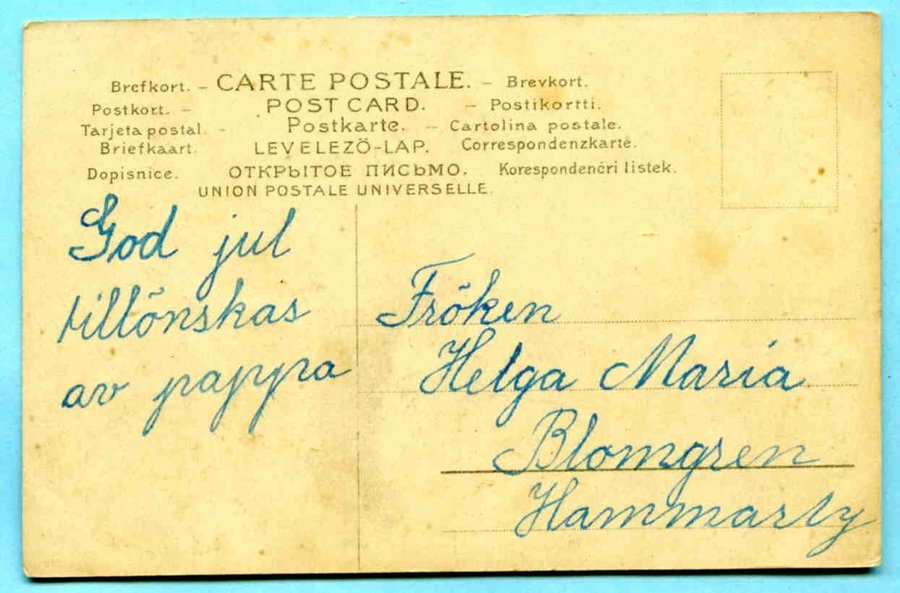 Brefkort. – CARTE POSTALE. – Brevkort.
Postkort. – POST CARD. – Postikortti.
Tarjeta postal. – Postkarte. – Cartolina postale.
Briefkaart. LEVELEZÖ-LAP. Correspondenzkarte.
Dopisnice. ОТКРЫТОЕ ПИСЬМО. Korespondenčri listek.
UNION POSTALE UNIVERSELLE.
God jul
tillönskas
av pappa
Fröken
Helga Maria
Blomgren
Hammarby